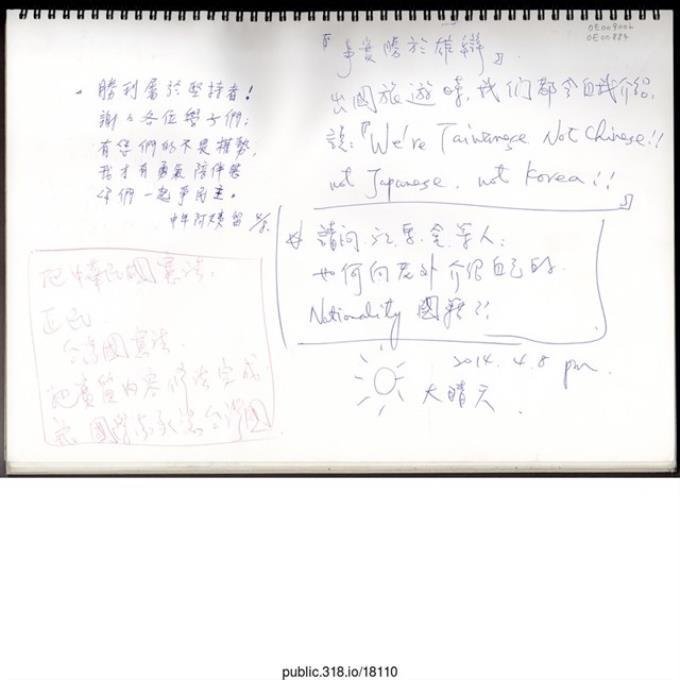 OE009006
OE00884
勝利屬於堅持者!
謝謝各位學子們:
有您們的不畏權勢,
我才有勇氣陪伴著
你們一起爭民主。
中年阿姨 留 4/8.
『事實勝於雄辯』.
出國旅遊時, 我们都会自我介紹,
說:『We're Taiwanese. Not Chinese!!
not Japanese. not Korea!!
』
請问. 江. 馬. 金. 等人:
如何向老外介紹自己的
Nationality 國籍!!
2014. 4. 8 pm.
大晴天.
把中華民國憲法.
正名
台灣國憲法.
把實質內容修法完成
public.318.io/18110